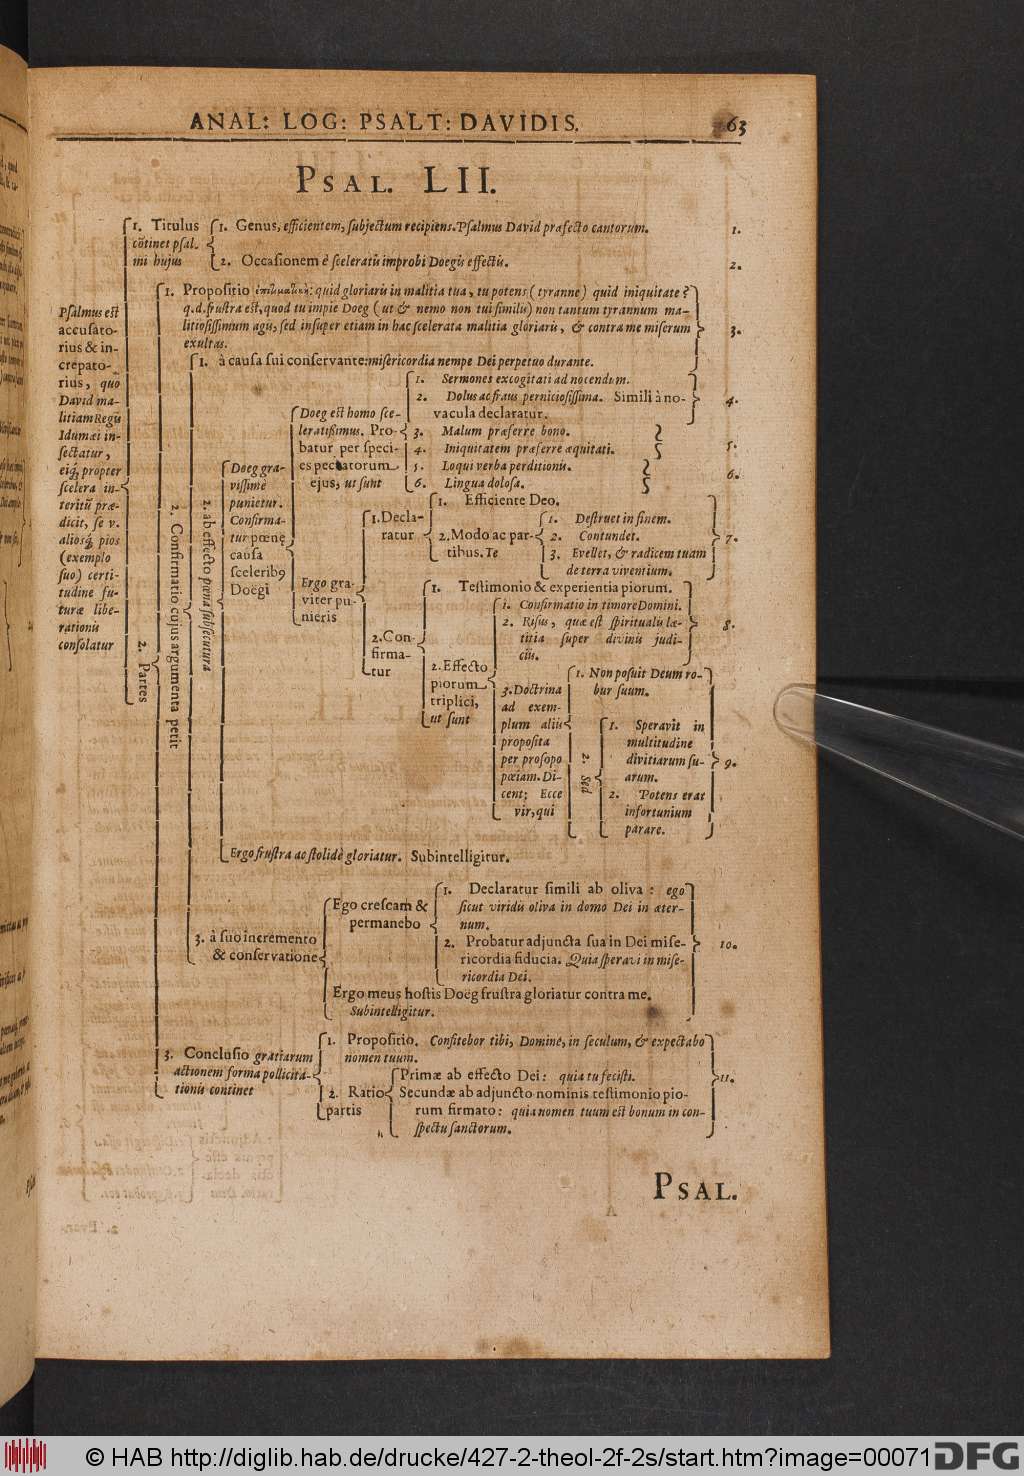 ANAL: LOG: PSALT: DAVIDIS. 63
PSAL. LII.
Psalmus est
accusato-
rius & in-
crepato-
rius, quo
David ma-
litiam Regis
Idumæi in-
sectatur,
eiq́, propter
scelera in-
teritũ præ-
dicit, se v.
aliosq́, pios
(exemplo
suo) certi-
tudine fu-
turæ libe-
rationis
consolatur
1. Titulus
cōtinet psal-
mi hujus
1. Genus, efficientem, subjectum recipiens. Psalmus David præfecto cantorum. 1.
2. Occasionem è sceleratis improbi Doegis effectis. 2.
2. Partes
1. Propositio ἐπιτιμητικὴ: quid gloriaris in malitia tua, tu potens (tyranne) quid iniquitate?
q.d. frustra est, quod tu impie Doeg (ut & nemo non tui similis) non tantum tyrannum ma-
litiosissimum agis, sed insuper etiam in hac scelerata malitia gloriaris, & contra me miserum 3.
exultas.
2. Confirmatio cujus argumenta petit
1. à causa sui conservante: misericordia nempe Dei perpetuo durante.
2. ab effecto pœna subsecutura
Doeg gra-
vissime
punietur.
Confirma-
tur pœnę
causa
sceleribꝰ
Doëgi
Doeg est homo sce-
leratissimus. Pro-
batur per speci-
es peccatorum
ejus, ut sunt
1. Sermones excogitati ad nocendum.
2. Dolus ac fraus perniciosissima. Simili à no- 4.
vacula declaratur.
3. Malum præferre bono.
4. Iniquitatem præferre æquitati. 5.
5. Loqui verba perditionis.
6. Lingua dolosa. 6.
Ergo gra-
viter pu-
nieris
1. Decla-
ratur
1. Efficiente Deo.
2. Modo ac par-
tibus. Te
1. Destruet in finem.
2. Contundet. 7.
3. Evellet, & radicem tuam
de terra viventium.
2. Con-
firma-
tur
1. Testimonio & experientia piorum.
2. Effecto
piorum
triplici,
ut sunt
1. Confirmatio in timore Domini.
2. Risus, quæ est spiritualis læ- 8.
titia super divinis judi-
ciis.
3. Doctrina
ad exem-
plum aliis
proposita
per prosopo
pœiam. Di-
cent; Ecce
vir, qui
1. Non posuit Deum ro-
bur suum.
2. Sed
1. Speravit in
multitudine
divitiarum su- 9.
arum.
2. Potens erat
infortunium
parare.
Ergo frustra ac stolidè gloriatur. Subintelligitur.
3. à suo incremento
& conservatione
Ego crescam &
permanebo
1. Declaratur simili ab oliva: ego
sicut viridis oliva in domo Dei in æter-
num.
2. Probatur adjuncta sua in Dei mise- 10.
ricordia fiducia. Quia speravi in mise-
ricordia Dei.
Ergo meus hostis Doëg frustra gloriatur contra me.
Subintelligitur.
3. Conclusio gratiarum
actionem forma pollicita-
tionis continet
1. Propositio. Confitebor tibi, Domine, in seculum, & expectabo
nomen tuum.
2. Ratio
partis
Primæ ab effecto Dei: quia tu fecisti. 11.
Secundæ ab adjuncto nominis testimonio pio-
rum firmato: quia nomen tuum est bonum in con-
spectu sanctorum.
PSAL.
© HAB http://diglib.hab.de/drucke/427-2-theol-2f-2s/start.htm?image=00071
DFG